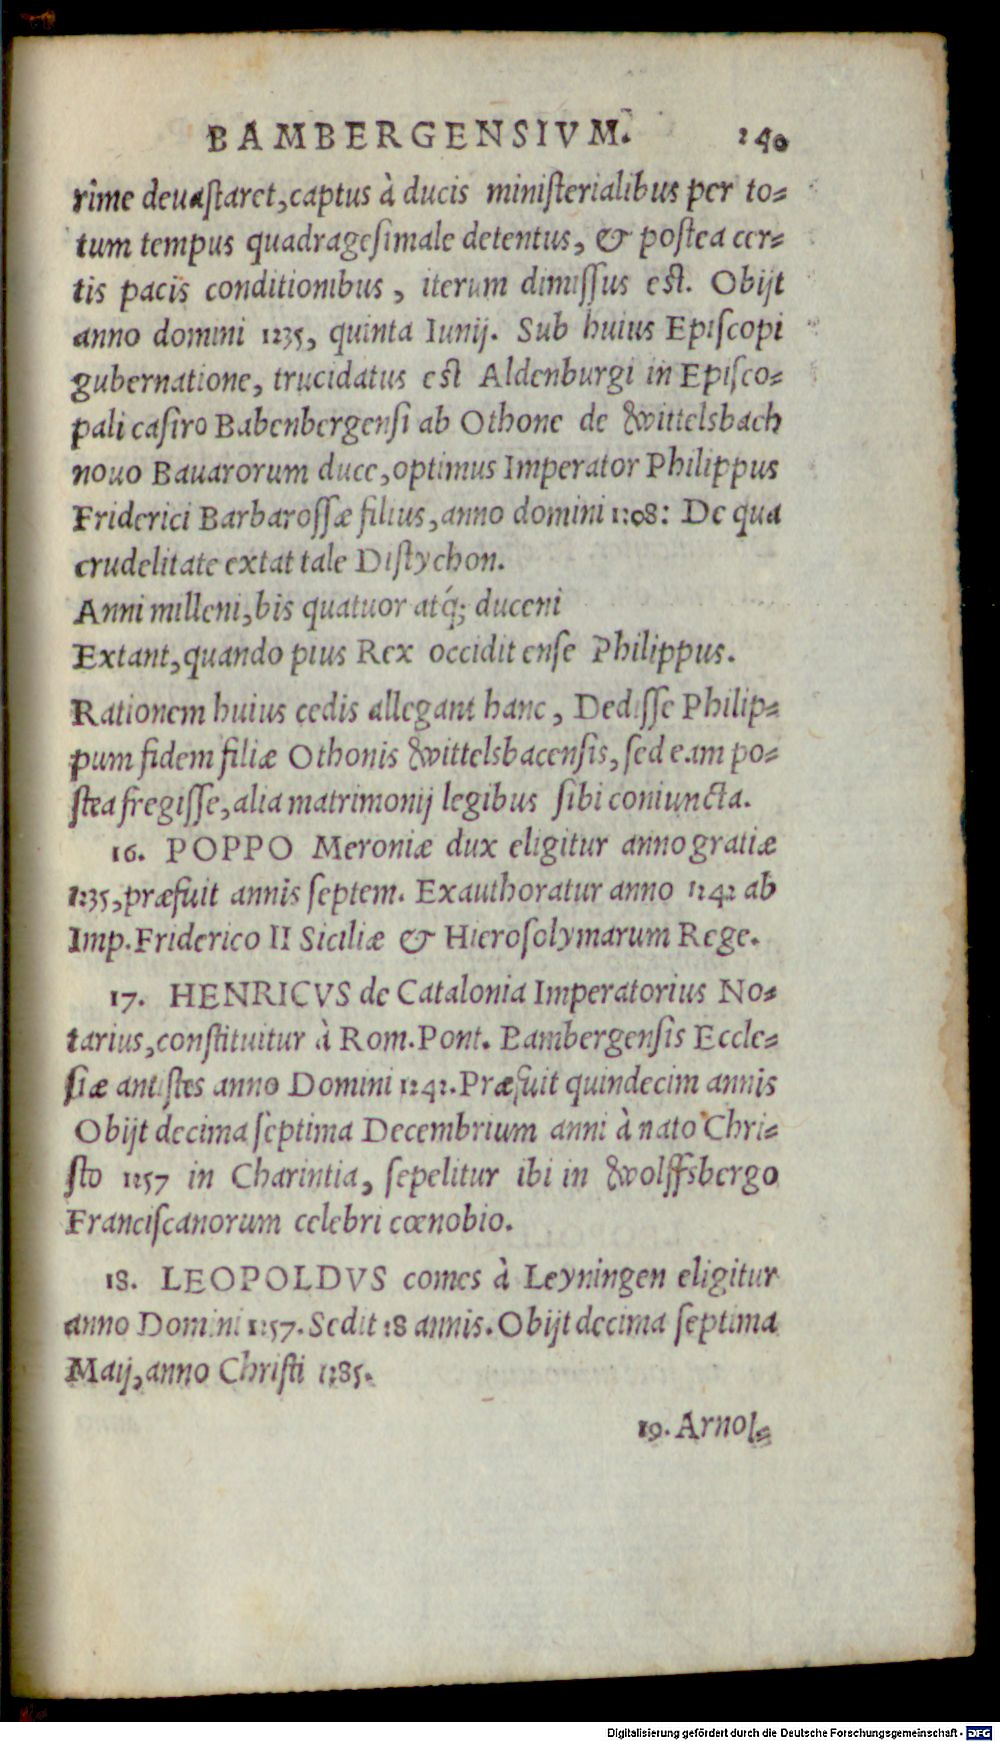 BAMBERGENSIVM. 240
rime deuastaret, captus à ducis ministerialibus per to-
tum tempus quadragesimale detentus, & postea cer-
tis pacis conditionibus, iterum dimissus est. Obijt
anno domini 1235, quinta Iunij. Sub huius Episcopi
gubernatione, trucidatus est Aldenburgi in Episco-
pali castro Babenbergensi ab Othone de Wittelsbach
nouo Bauarorum duce, optimus Imperator Philippus
Friderici Barbarossæ filius, anno domini 1208: De qua
crudelitate extat tale Distychon.
Anni milleni, bis quatuor atq́; duceni
Extant, quando pius Rex occidit ense Philippus.
Rationem huius cedis allegant hanc, Dedisse Philip-
pum fidem filiæ Othonis Wittelsbacensis, sed eam po-
stea fregisse, alia matrimonij legibus sibi coniuncta.
16. POPPO Meroniæ dux eligitur anno gratiæ
1235, præfuit annis septem. Exauthoratur anno 1242 ab
Imp. Friderico II Siciliæ & Hierosolymarum Rege.
17. HENRICVS de Catalonia Imperatorius No-
tarius, constituitur à Rom. Pont. Bambergensis Eccle-
siæ antistes anno Domini 1242. Præfuit quindecim annis
Obijt decima septima Decembrium anni à nato Chri-
sto 1257 in Charintia, sepelitur ibi in Wolffsbergo
Franciscanorum celebri cœnobio.
18. LEOPOLDVS comes à Leyningen eligitur
anno Domini 1257. Sedit 28 annis. Obijt decima septima
Maij, anno Christi 1285.
19. Arnol-
Digitalisierung gefördert durch die Deutsche Forschungsgemeinschaft - DFG